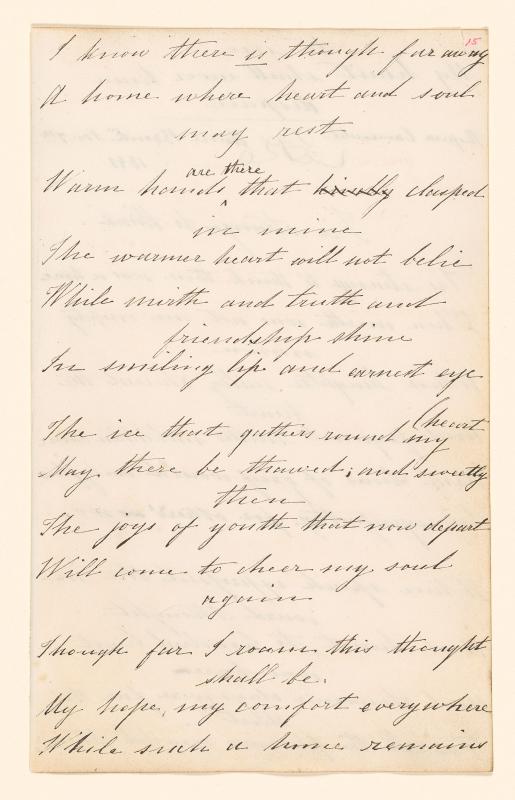 15
I know there is though far away
A home where heart and soul
may rest
are there
Warm hands that kindly clasped
in mine
The warmer heart will not belie
While mirth and truth and
friendship shine
In smiling lip and earnest eye
(heart
The ice that gathers round my
May there be thawed; and sweetly
then
The joys of youth that now depart
Will come to cheer my soul
again
Though far I roam this thought
shall be.
My hope, my comfort everywhere
While such a home remains